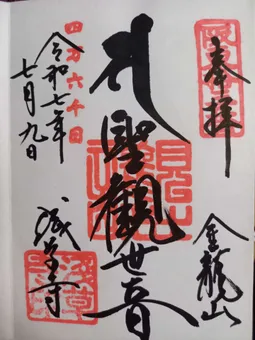 奉拝
金龍山
聖觀世音
浅草寺
四万六千日
令和七年
七月九日